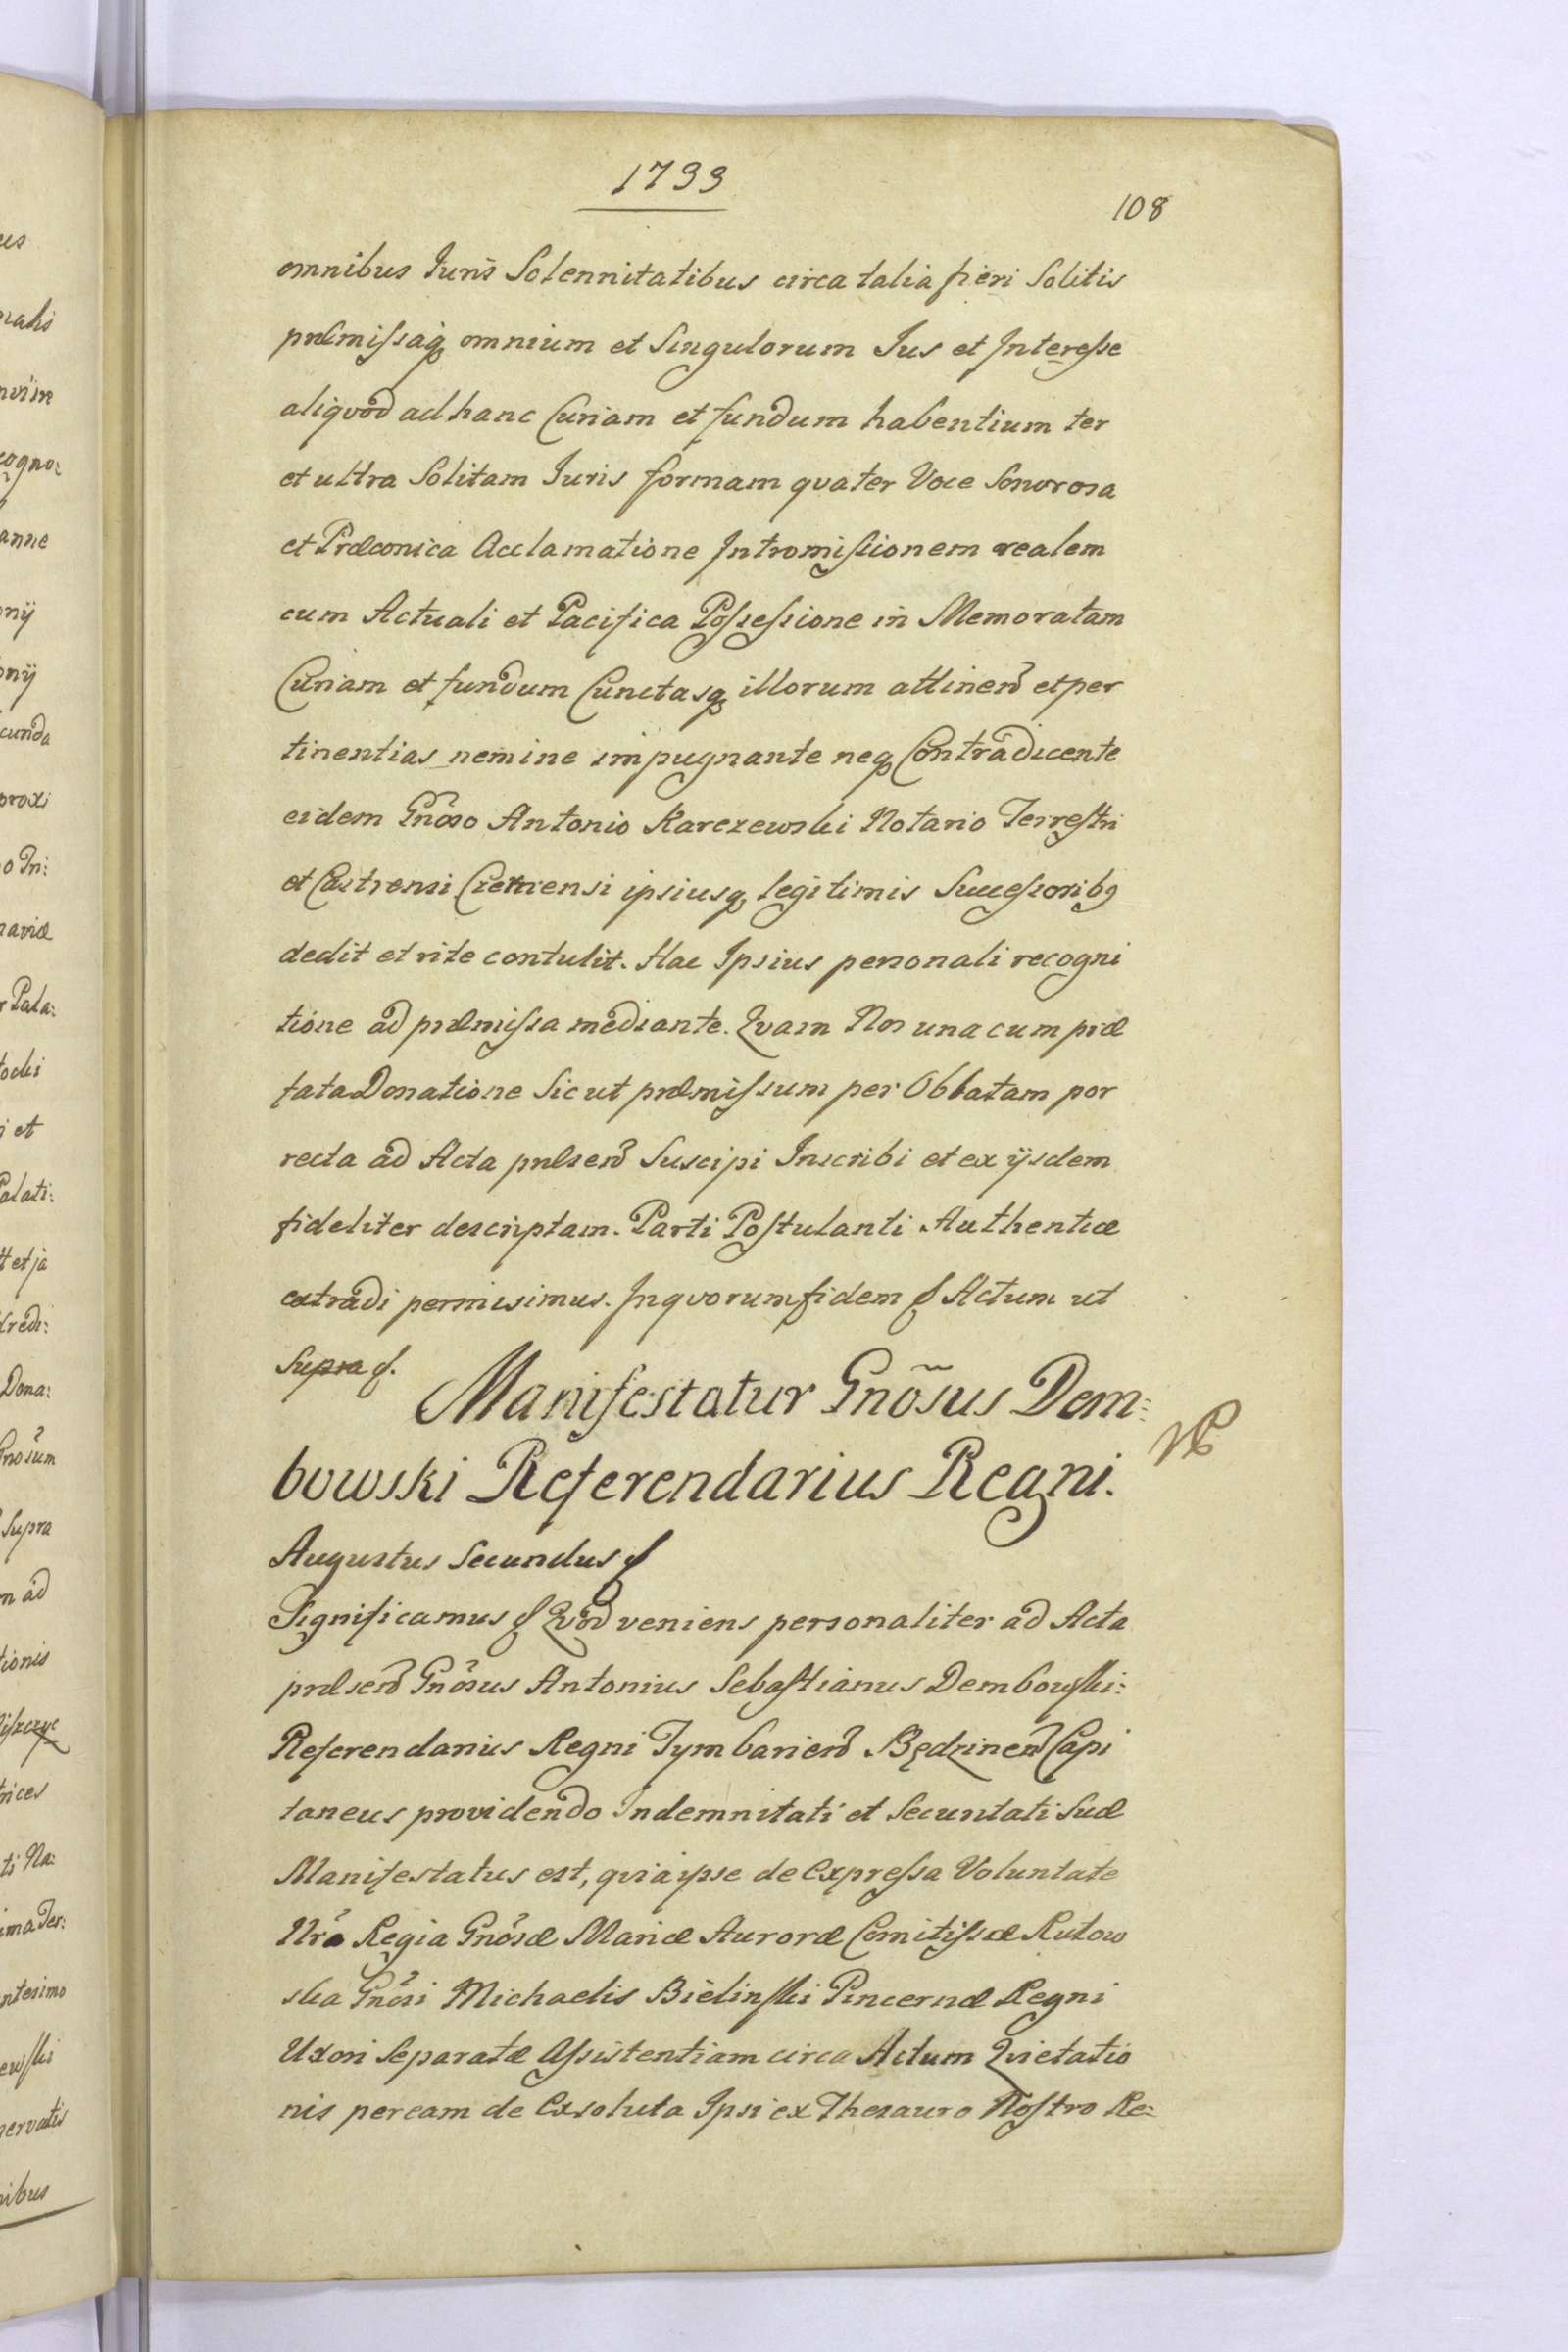 1733
108
omnibus Juris Solennitatibus circa talia fieri Solitis
præmissaq̃ omnium et Singulorum Jus et Interesse
aliqvôd ad hanc Curiam et fundum habentium ter
et ultra Solitam Juris formam qvater Voce Sonorosa
et Præconica Acclamatione Intromissionem realem
cum Actuali et Pacifica Possessione in Memoratam
Curiam et fundum Cunctasq̃ illorum attineñ et per
tinentias nemine impugnante neq̃ Contradicente
eidem Gnôso Antonio Karczewski Notario Terrestri
et Castrensi Czernensi ipsiusq̃ legitimis Successorib9
dedit et rite contulit. Hac Ipsius personali recogni
tione ad præmissa mediante. Qvam Nos una cum præ
fata Donatione Sicut præmissum per Oblatam por
recta ad Acta præsenỡ Suscipi Inscribi et ex ijsdem
fideliter descriptam. Parti Postulanti Authenticæ
extradi permisimus. In qvorum fidem & Actum ut
Supra &.
Manifestatur Gnõsus Dem:
bowski Referendarius Regni.
Augustus Secundus &
Significamus & Qvôd veniens personaliter ad Acta
præseñ Gnôsus Antonius Sebastianus Dembowski:
Referendarius Regni Tymbarieñ Będzineñ Capi
taneus providendo Indemnitati et Securitati Suæ
Manifestatus est, qvia ipse de Expressa Voluntate
Nrã Regia Gnôsæ Mariæ Auroræ Comitissæ Rutow
ska Gnôsi Michaelis Bielinski Pincernæ Regni
Uxori Separatæ Assistentiam circa Actum Qvietatio
nis per eam de Exsoluta Ipsi ex Thesauro Nostro Re: